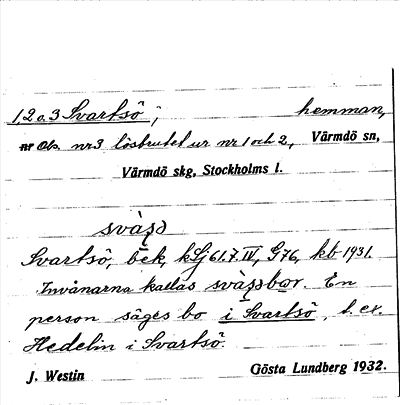 1, 2 o. 3 Svartsö, hemman,
Obs. nr 3 lösbrutet ur nr 1 och 2, Värmdö sn,
Värmdö skg, Stockholms l.
Svartsö, bek, kSj 61.7.IV, G76, kb 1931.
Invånarna kallas En
person säges bo i Svartsö, t. ex.
Hedelin i Svartsö.
J. Westin Gösta Lundberg 1932.